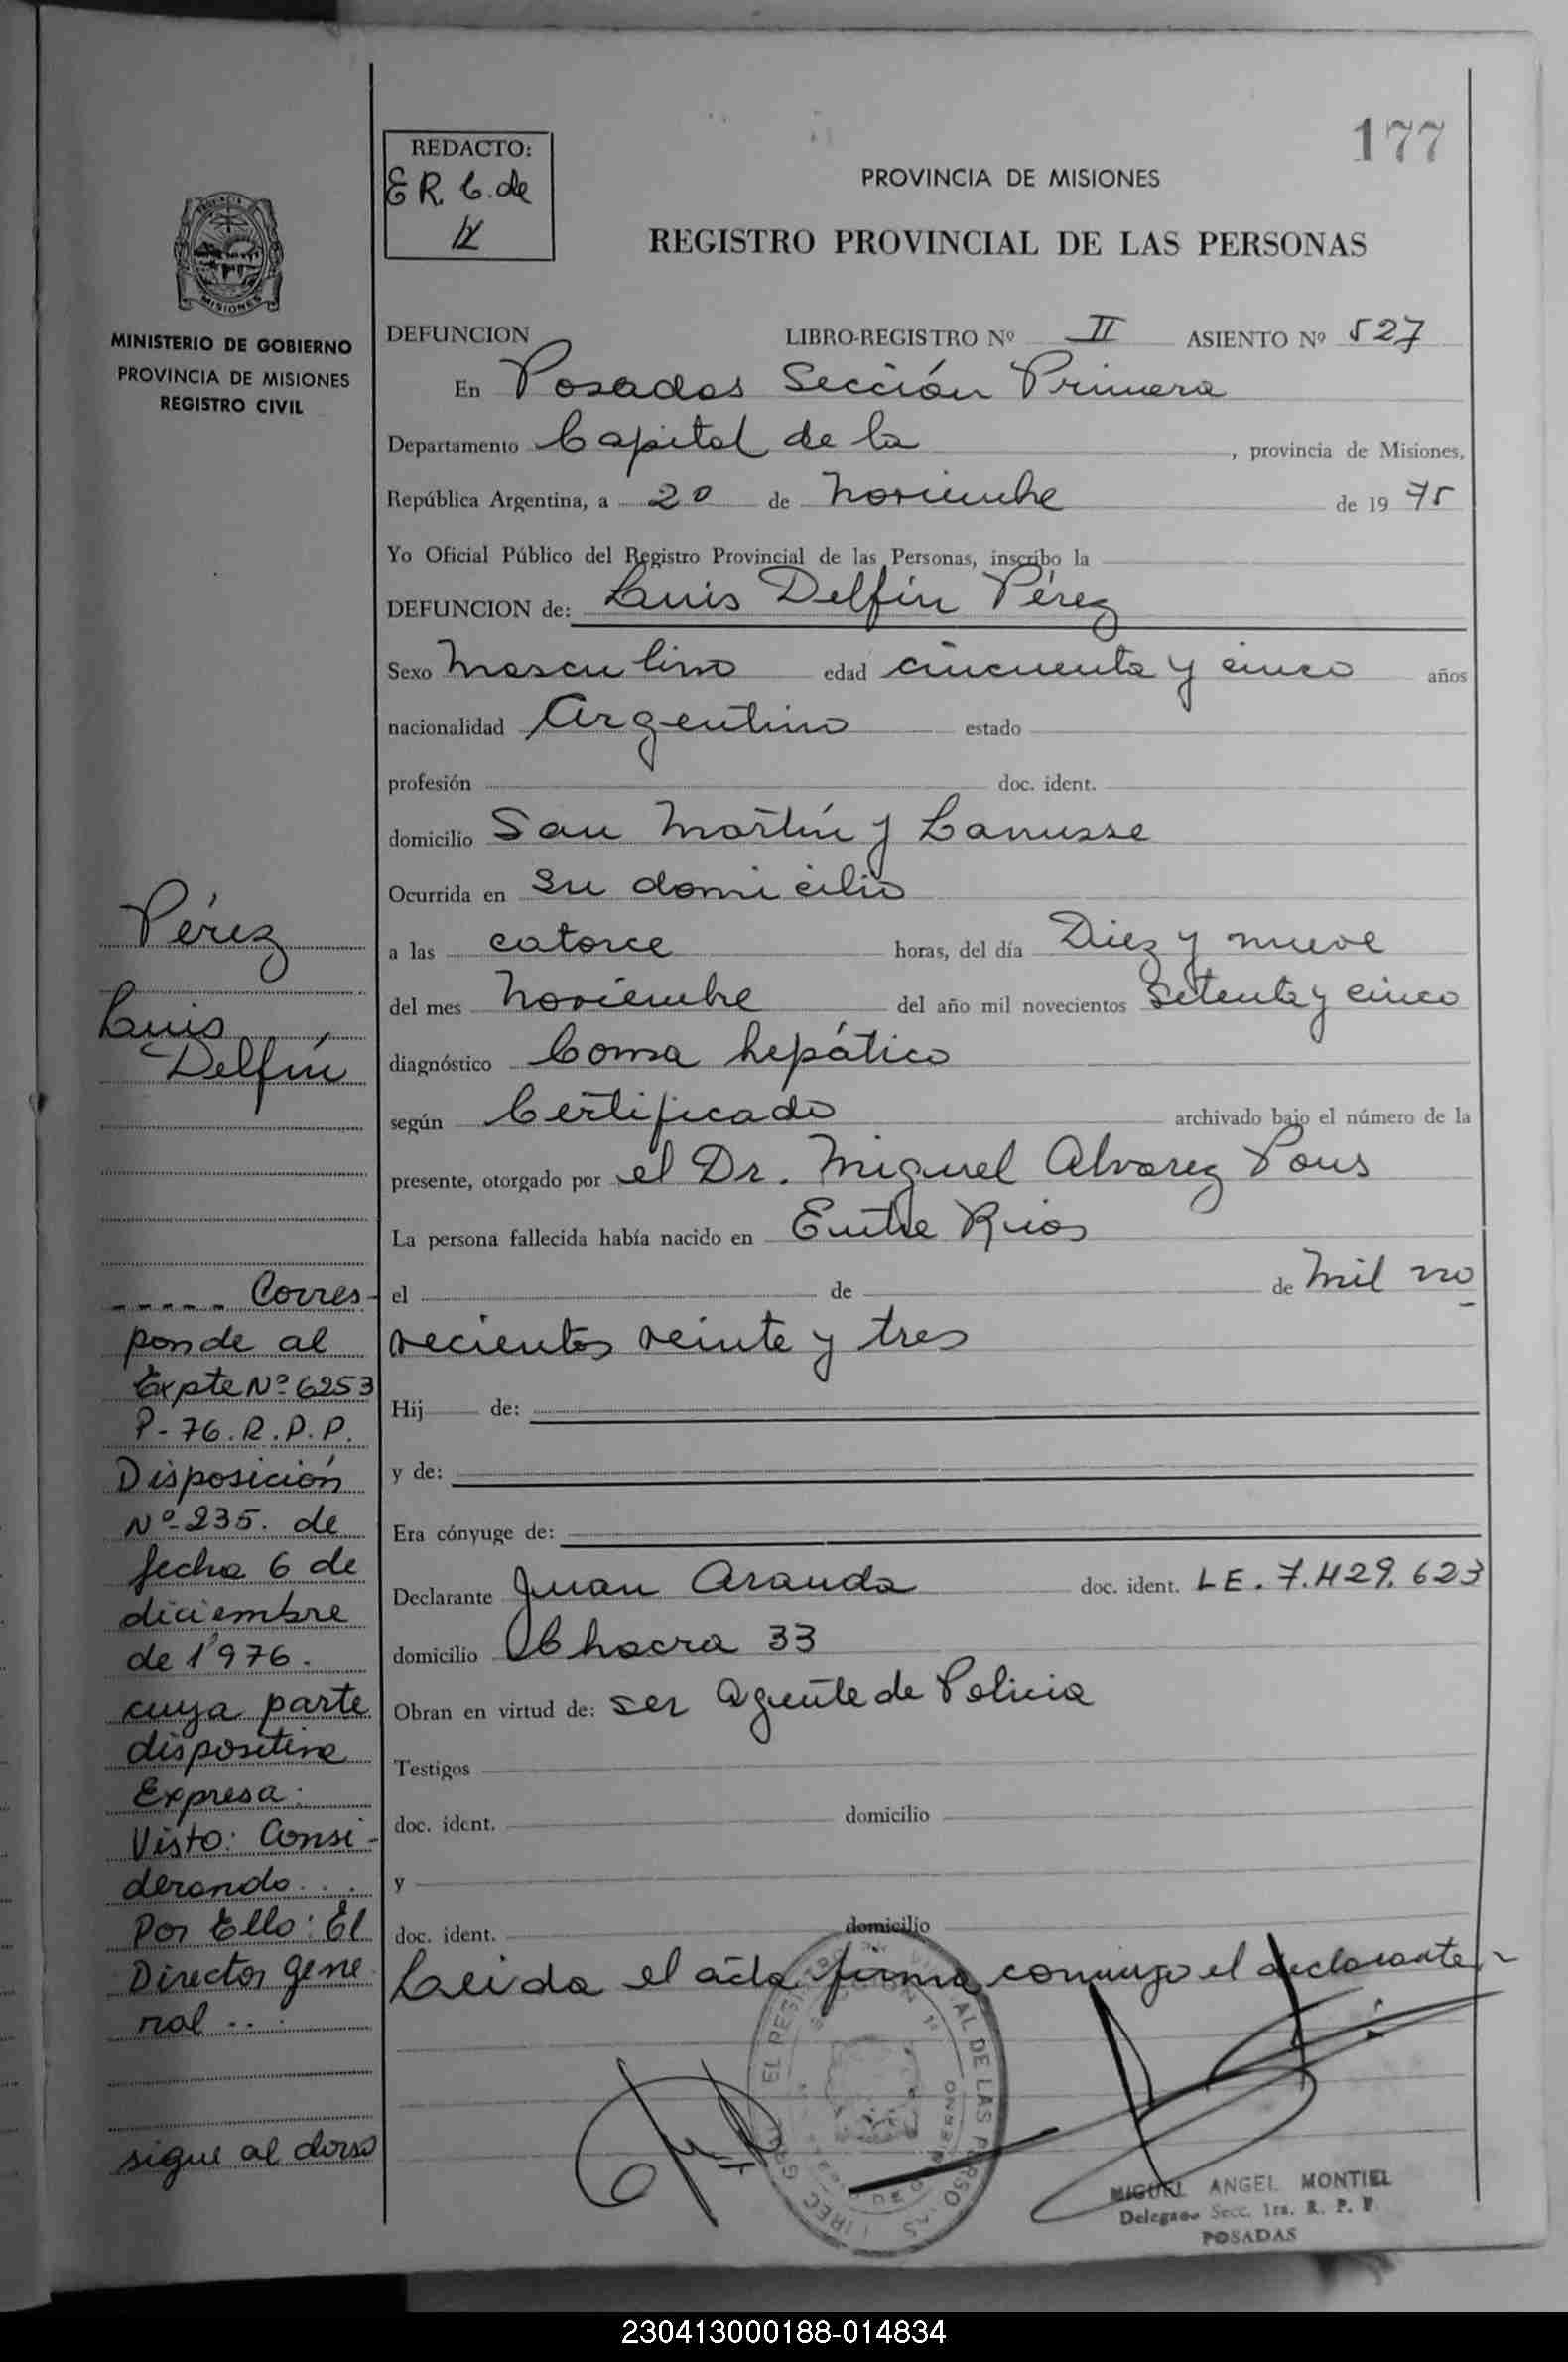 177
REDACTO:
E R. C. de
PROVINCIA DE MISIONES
REGISTRO PROVINCIAL DE LAS PERSONAS
MISIONES
MINISTERIO DE GOBIERNO
PROVINCIA DE MISIONES
REGISTRO CIVIL
DEFUNCION LIBRO-REGISTRO Nº II ASIENTO Nº 527
En Posadas Sección Primera
Departamento Capital de la , provincia de Misiones,
República Argentina, a 20 de Noviembre de 19 75
Yo Oficial Público del Registro Provincial de las Personas, inscribo la
DEFUNCION de: Luis Delfín Pérez
Sexo Masculino edad cincuenta y cinco años
nacionalidad Argentino estado
profesión doc. ident.
domicilio San Martín y Lanusse
Ocurrida en su domicilio
a las catorce horas, del día Diez y nueve
del mes Noviembre del año mil novecientos setenta y cinco
diagnóstico Coma hepático
según Certificado archivado bajo el número de la
presente, otorgado por el Dr. Miguel Alvarez Pous
La persona fallecida había nacido en Entre Rios
el de de Mil no
vecientos veinte y tres
Hij de:
y de:
Era cónyuge de:
Declarante Juan Aranda doc. ident. LE. 7.429.623
domicilio Chacra 33
Obran en virtud de: ser agente de Policia
Testigos
doc. ident. domicilio
y
doc. ident. domicilio
Leida el acta firma conmigo el declarante
Pérez
Luis
Delfín
----- Corres-
ponde al
Expte Nº 6253
P-76.R.P.P.
Disposición
Nº-235. de
fecha 6 de
diciembre
de 1976.
cuya parte
dispositiva
Expresa:
Visto: Consi-
derando...
Por Ello: El
Director gene
ral...
sigue al dorso
MIGUEL ANGEL MONTIEL
Delegado Secc. 1ra. R. P. P.
POSADAS
230413000188-014834